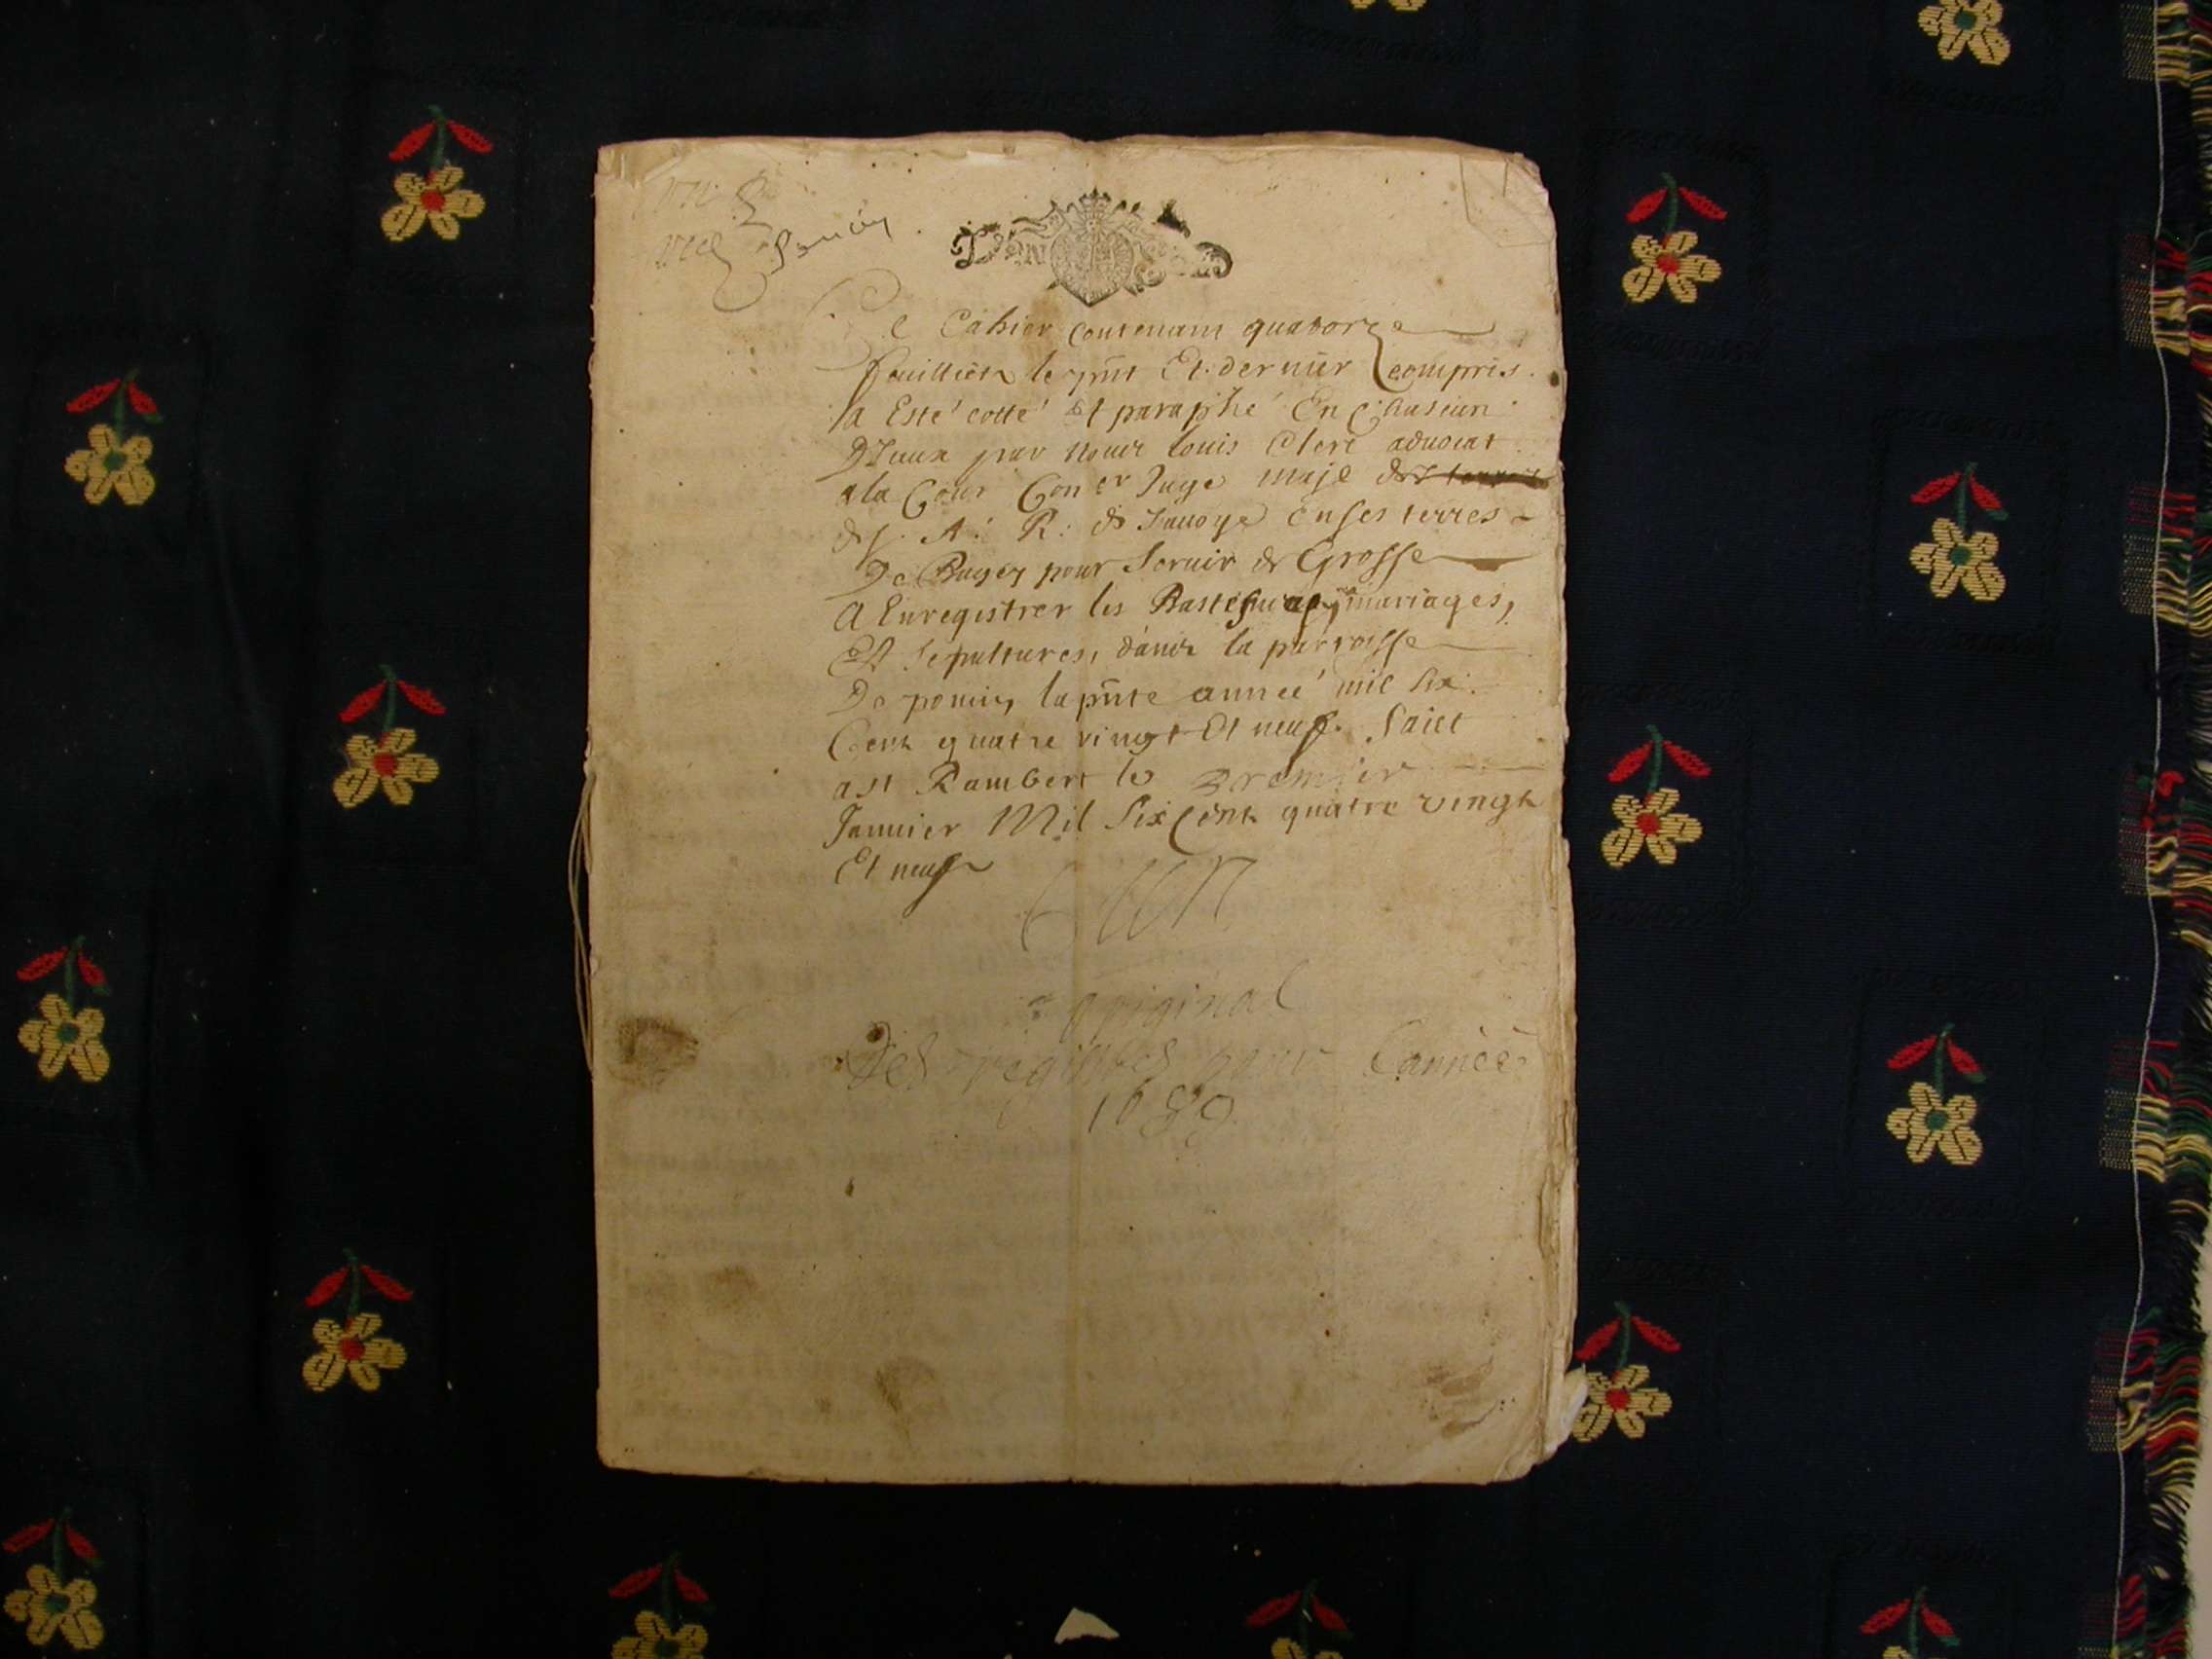 Poncin
Ce Cahier Contenant quatorze
feuillietz le pñt Et dernier compris
a Esté cotté Et paraphé En Chascun
D'Iceux par Nous Louis Clerc aduocat
a la Cour Con.er Juge maje des
de S. A. R. de Sauoye en ses terres
De Bugey pour Seruir de Grosse
A Enregistrer les Bastesmes, mariages,
Et Sepultures, dans la parroisse
De poncin, la pñte année mil six
Cent quatre vingt Et neuf. Faict
a St Rambert le premier
Januier Mil Six Centz quatre vingt
Et neuf
original
des registres pour l'année
1689